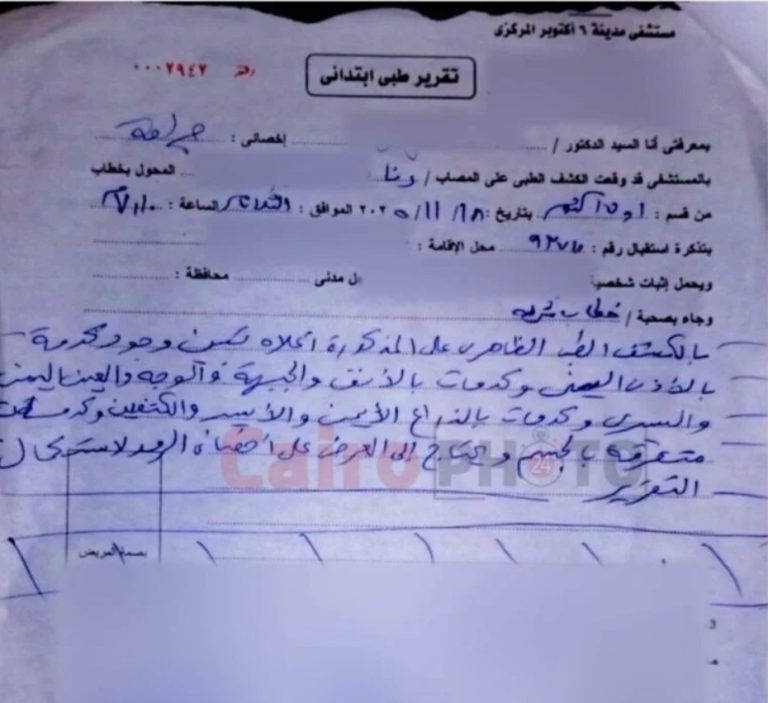 مستشفى مدينة ٦ أكتوبر المركزى
تقرير طبى ابتدائى
رقم ٠٠٠٢٩٤٢
بمعرفتى أنا السيد الدكتور / إخصائى : جراحة
بالمستشفى قد وقعت الكشف الطبى على المصاب / رنا المحول بخطاب
من قسم : اول أكتوبر بتاريخ : ١٨ / ١١ / ٢٠٢٥ الموافق : الثلاثاء الساعة :
بتذكرة استقبال رقم : محل الإقامة :
ويحمل إثبات شخصية ل مدنى محافظة :
وجاء بصحبة / خطاب شرطه
بالكشف الطبى الظاهرى على المذكورة اعلاه تبين وجود كدمة
بالأذن اليمنى وكدمات بالأنف والجبهة والوجه والعين اليمنى
واليسرى وكدمات بالذراع الأيمن والأيسر والكتفين وكدمات
متفرقة بالجسم وتحتاج إلى العرض على اخصائى الرمد لاستكمال
التقرير
Cairo PHOTO
24
بصمة المريض